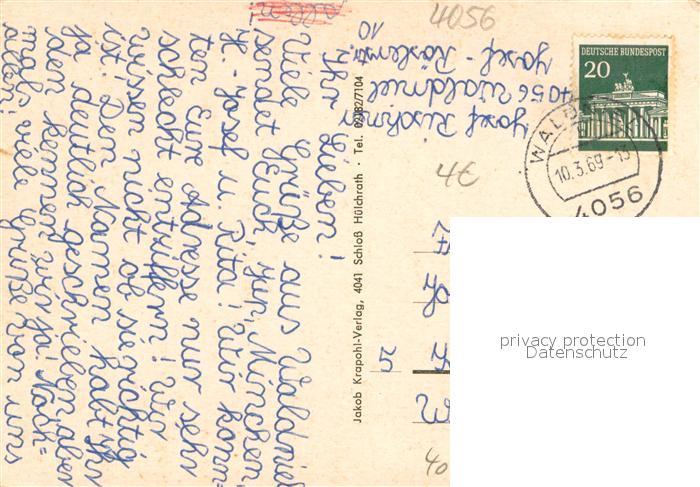 allen!
Ihr Lieben!
Viele Grüße aus Waldniel
sendet Euch, für, München
H.-Josef u. Rita! Wir konn=
ten Eure Adresse nur sehr
schlecht entziffern! Wir
wissen nicht ob se richtig
ist. Den Namen habt Ihr
ja deutlich geschrieben aber
den kennen wir ja! Noch=
mals viele Grüße von uns
allen!
Jakob Krapohl-Verlag, 4041 Schloß Hülchrath · Tel. 02182/7104
4056
Josef
4056 Waldniel
Josef-
10
4€
DEUTSCHE BUNDESPOST
20
WALDNIEL
10.3.69-13
4056
5
40
privacy protection
Datenschutz